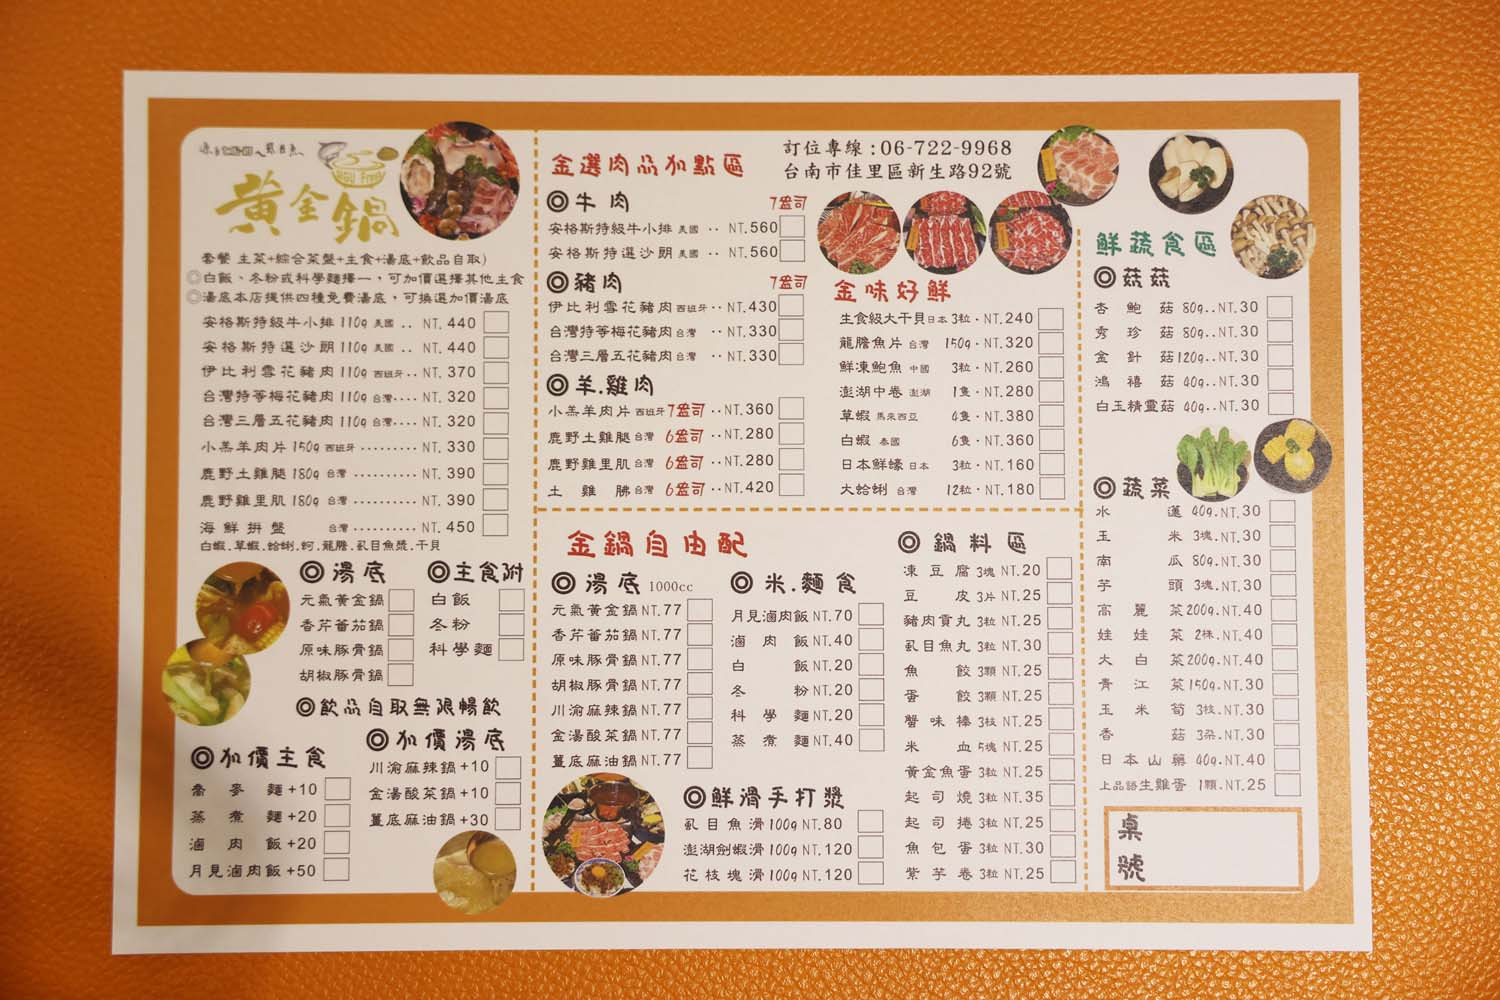 黃金鍋
套餐 主菜+綜合菜盤+主食+湯底+飲品自取)
◎白飯、冬粉或科學麵擇一，可加價選擇其他主食
◎湯底本店提供四種免費湯底，可換選加價湯底
安格斯特級牛小排 110g 美國 ‥ NT. 440
安格斯特選沙朗 110g 美國 ‥ NT. 440
伊比利雪花豬肉 110g 西班牙‥ NT. 370
台灣特等梅花豬肉 110g 台灣‥‥ NT. 320
台灣三層五花豬肉 110g 台灣‥‥ NT. 320
小羔羊肉片 150g 西班牙 ‥‥‥‥ NT. 330
鹿野土雞腿 180g 台灣 ‥‥‥‥‥ NT. 390
鹿野雞里肌 180g 台灣 ‥‥‥‥‥ NT. 390
海鮮拼盤 台灣 ‥‥‥‥‥ NT. 450
白蝦.草蝦.蛤蜊.蚵.龍膽.虱目魚漿.干貝
◎湯底
元氣黃金鍋
香芹蕃茄鍋
原味豚骨鍋
胡椒豚骨鍋
◎主食附
白飯
冬粉
科學麵
◎飲品自取無限暢飲
◎加價主食
喬麥麵+10
蒸煮麵+20
滷肉飯+20
月見滷肉飯+50
◎加價湯底
川渝麻辣鍋+10
金湯酸菜鍋+10
薑底麻油鍋+30
金選肉品加點區
◎牛肉 7盎司
安格斯特級牛小排 美國 ‥ NT.560
安格斯特選沙朗 美國 ‥ NT.560
◎豬肉 7盎司
伊比利雪花豬肉 西班牙‥NT.430
台灣特等梅花豬肉 台灣 ‥NT.330
台灣三層五花豬肉 台灣 ‥NT.330
◎羊.雞肉
小羔羊肉片 西班牙 7盎司 ‥NT.360
鹿野土雞腿 台灣 6盎司 ‥NT.280
鹿野雞里肌 台灣 6盎司 ‥NT.280
土雞胇 台灣 6盎司 ‥NT.420
訂位專線：06-722-9968
台南市佳里區新生路92號
金味好鮮
生食級大干貝 日本 3粒・NT.240
龍膽魚片 台灣 150g・NT.320
鮮凍鮑魚 中國 3粒・NT.260
澎湖中卷 澎湖 1隻・NT.280
草蝦 馬來西亞 4隻・NT.380
白蝦 泰國 6隻・NT.360
日本鮮蠔 日本 3粒・NT.160
大蛤蜊 台灣 12粒・NT.180
金鍋自由配
◎湯底 1000cc
元氣黃金鍋 NT.77
香芹蕃茄鍋 NT.77
原味豚骨鍋 NT.77
胡椒豚骨鍋 NT.77
川渝麻辣鍋 NT.77
金湯酸菜鍋 NT.77
薑底麻油鍋 NT.77
◎米.麵食
月見滷肉飯 NT.70
滷肉飯 NT.40
白飯 NT.20
冬粉 NT.20
科學麵 NT.20
蒸煮麵 NT.40
◎鮮滑手打漿
虱目魚滑 100g NT.80
澎湖劍蝦滑 100g NT.120
花枝塊滑 100g NT.120
◎鍋料區
凍豆腐 3塊 NT.20
豆皮 3片 NT.25
豬肉貢丸 3粒 NT.25
虱目魚丸 3粒 NT.30
魚餃 3顆 NT.25
蛋餃 3顆 NT.25
蟹味棒 3枝 NT.25
米血 5塊 NT.25
黃金魚蛋 3粒 NT.25
起司燒 3粒 NT.35
起司捲 3粒 NT.25
魚包蛋 3粒 NT.30
紫芋卷 3粒 NT.25
鮮蔬食區
◎菇菇
杏鮑菇 80g‥NT.30
秀珍菇 80g‥NT.30
金針菇 120g‥NT.30
鴻禧菇 40g‥NT.30
白玉精靈菇 40g‥NT.30
◎蔬菜
水蓮 40g.NT.30
玉米 3塊.NT.30
南瓜 80g.NT.30
芋頭 3塊.NT.30
高麗菜 200g.NT.40
娃娃菜 2株.NT.40
大白菜 200g.NT.40
青江菜 150g.NT.30
玉米筍 3枝.NT.30
香菇 3朵.NT.30
日本山藥 40g.NT.40
上品語生雞蛋 1顆.NT.25
桌號